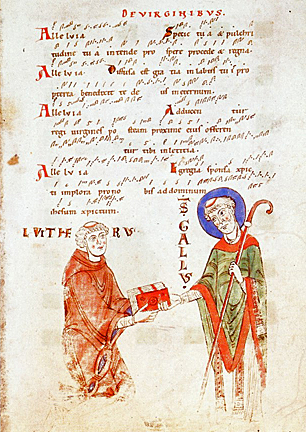 DE VIRGINIBUS.
Alleluia Specie tua & pulchri
tudine tua intende pro spere procede & regna.
Alleluia Diffusa est gra tia in labiis tuis pro
pterea benedixit te deus in eternum.
Alleluia Adducen tur
regi virgines post eam proxime eius offeren
tur tibi in leticia.
Alleluia Egregia sponsa xpi
implora pro nobis ad dominum
ihesum xpictum
LUITHERUS
S GALLUS